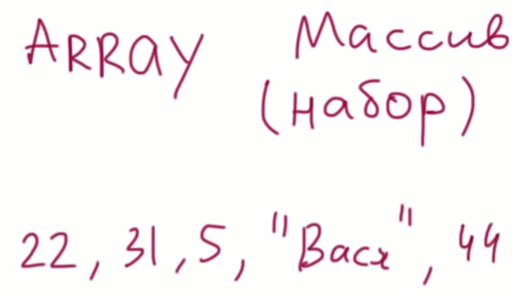 ARRAY Массив
(набор)
22, 31, 5, "Вася", 44